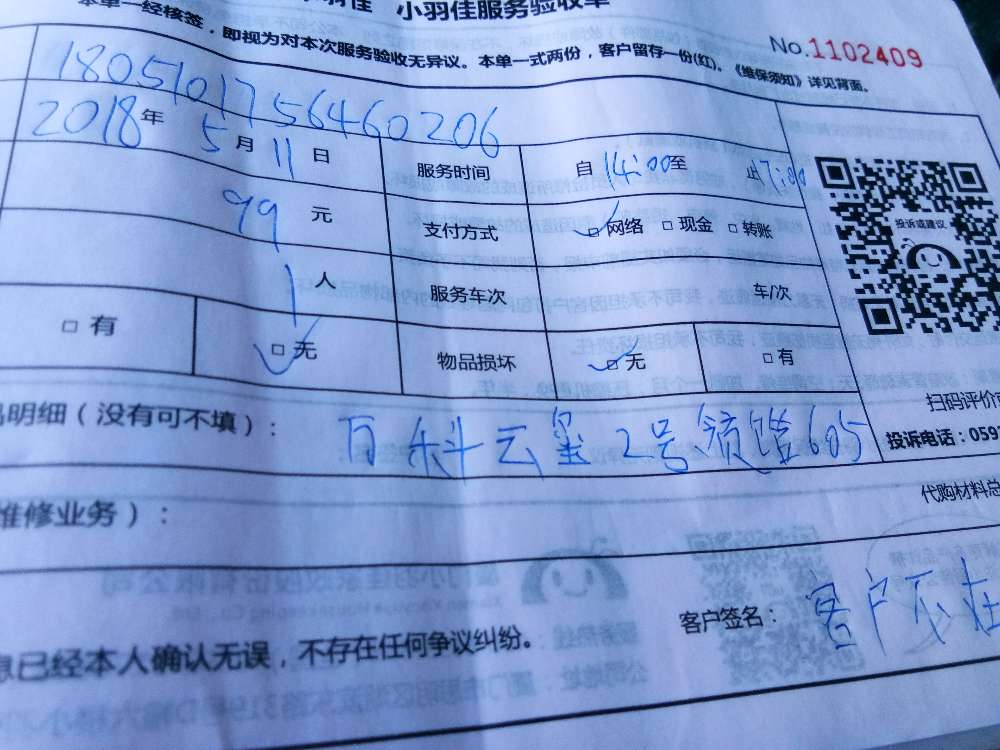 小羽佳服务验收单
本单一经核签，即视为对本次服务验收无异议。本单一式两份，客户留存一份(红)。《维保须知》详见背面。
No.1102409
18051017 56460206
2018年5月11日 服务时间 自14:00至 17:00止
99元 支付方式 □网络 □现金 □转账
1人 服务车次 车/次
□有 □无 物品损坏 □无 □有
投诉或建议
扫码评价
投诉电话：059
明细（没有可不填）： 万科云玺2号 605
代购材料总
维修业务）：
客户签名：客户不在
息已经本人确认无误，不存在任何争议纠纷。